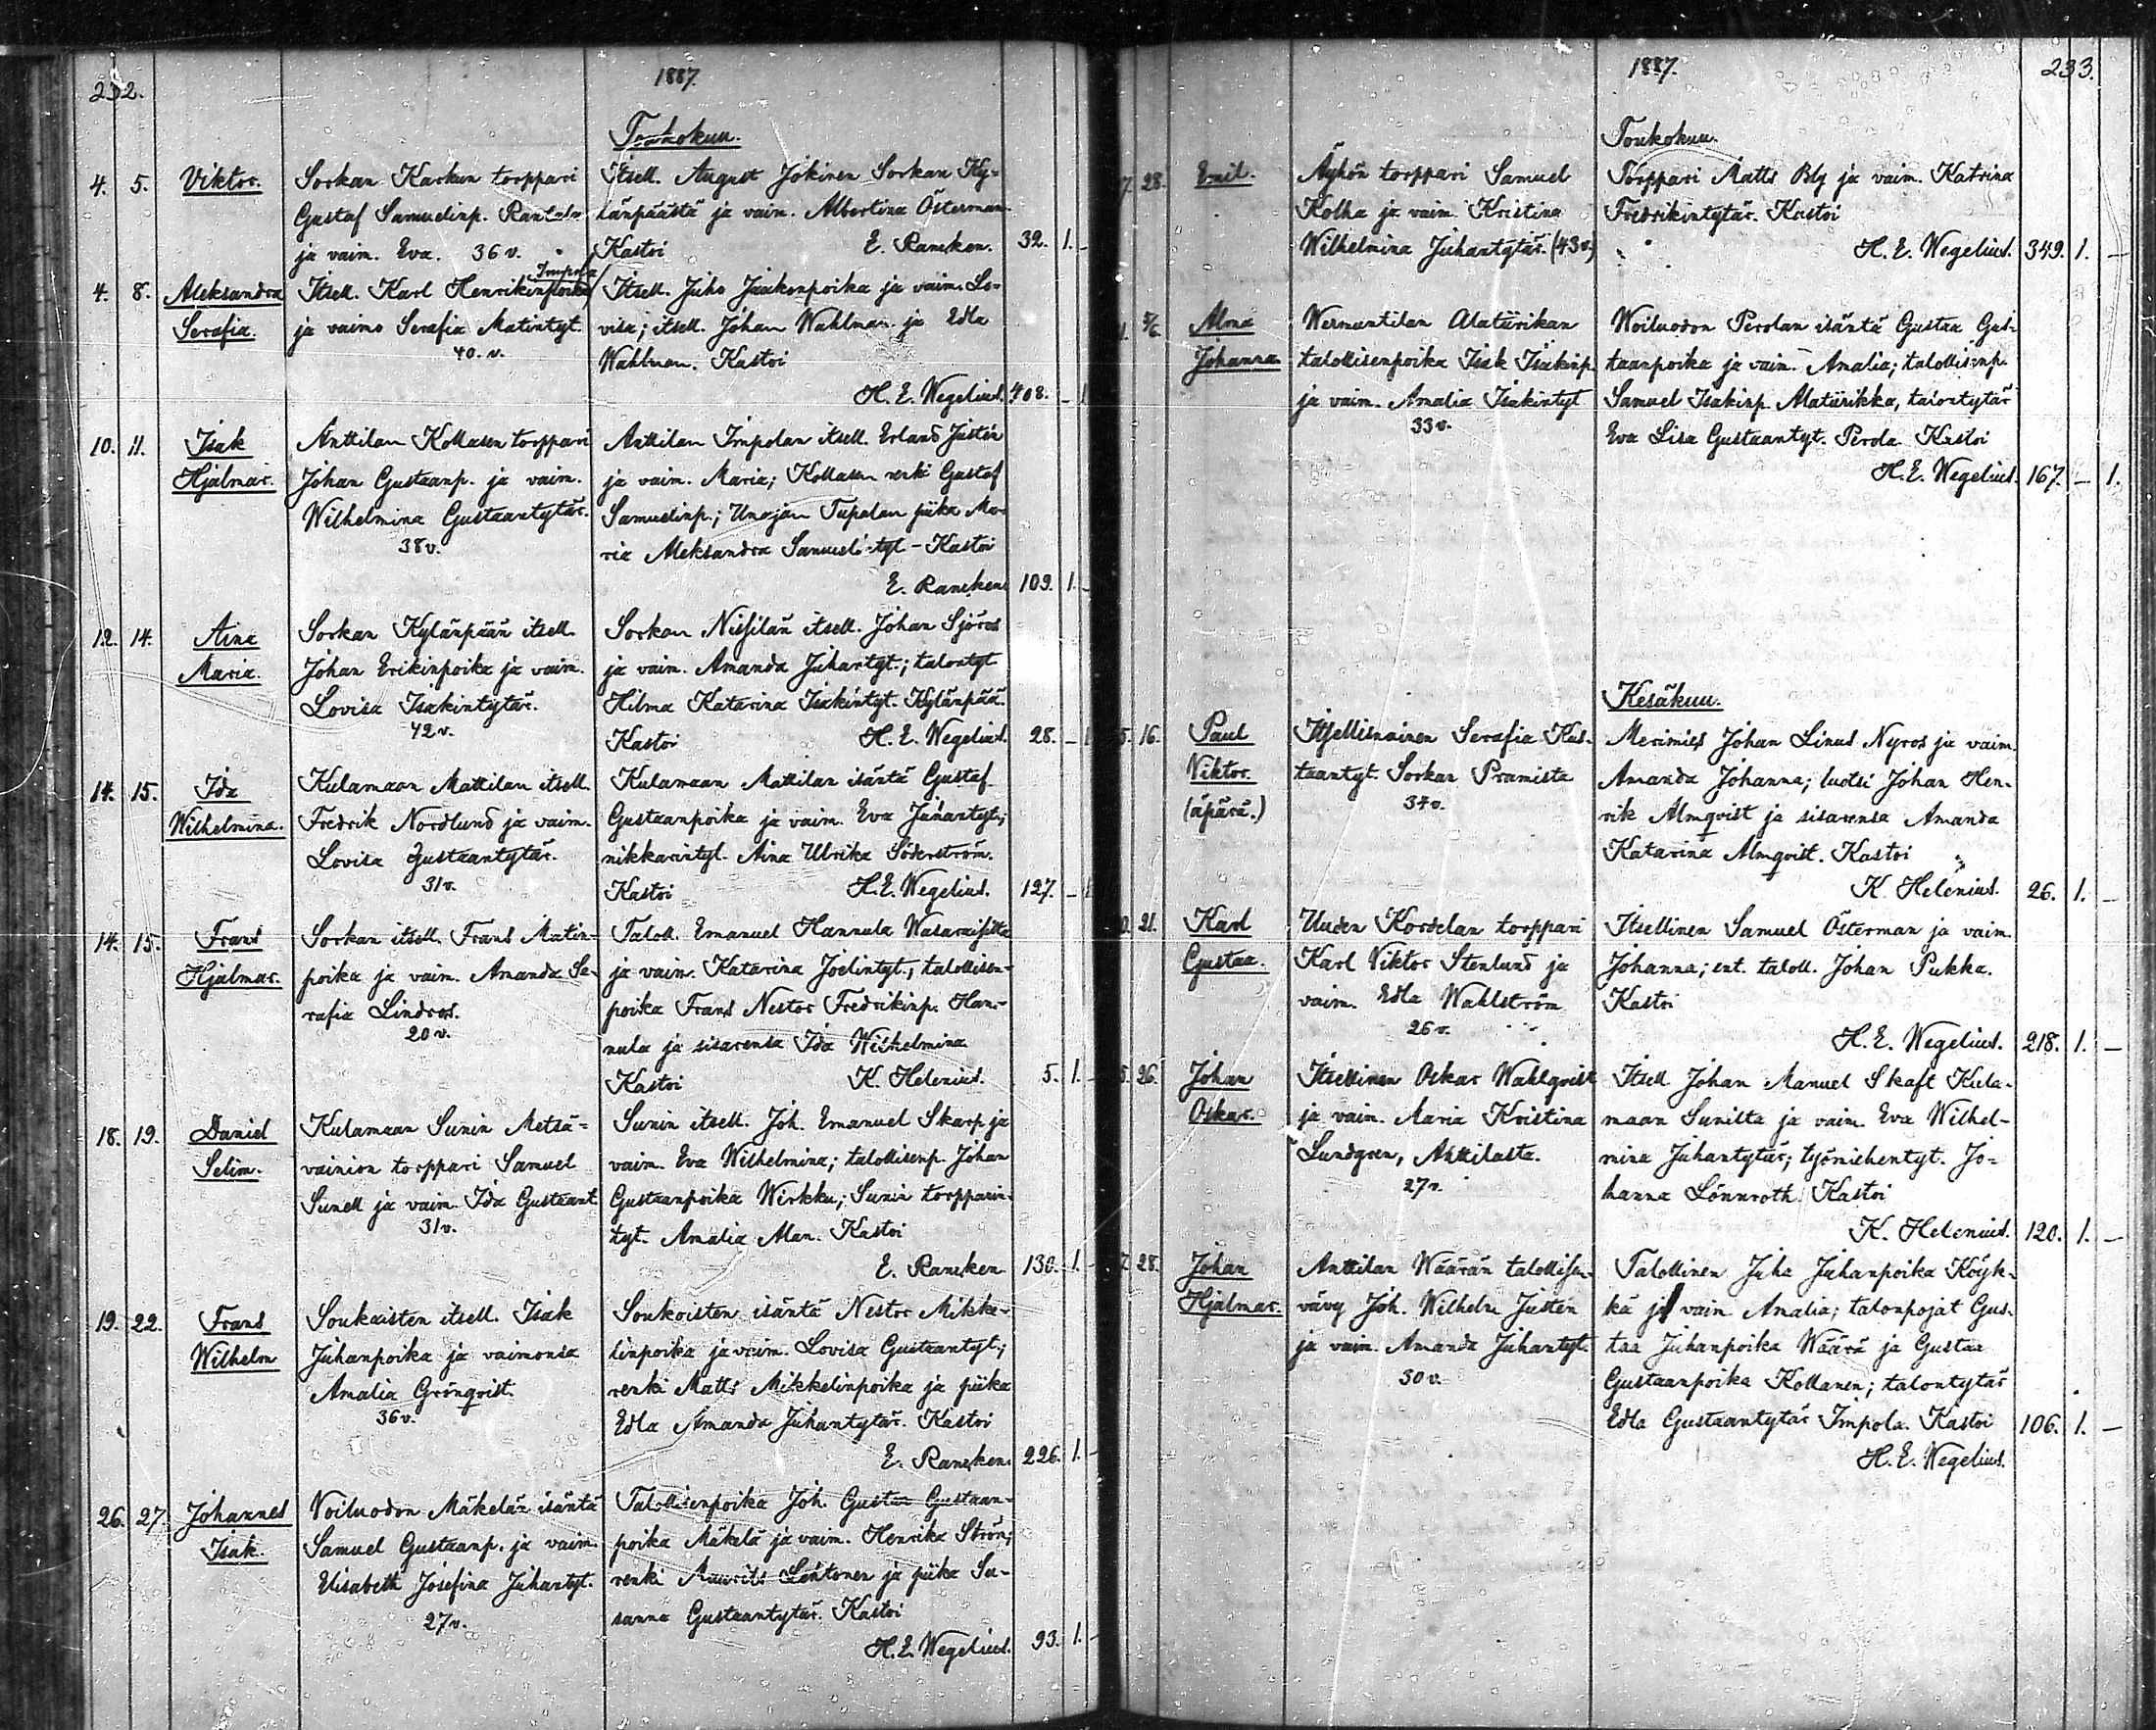 232.
1887.
Toukokuu.
4. 5. Viktor. Sorkan Karkun torppari Itsell. August Jokinen Sorkan Ky-
Gustaf Samuelinp. Rantala länpäästä ja vaim. Albertina Österman
ja vaim. Eva. 36 v. Kastoi E. Rancken. 32. 1. -
Impola
4. 8. Aleksandra Itsell. Karl Henrikinpoika Itsell. Juho Jaakonpoika ja vaim. Lo-
Serafia. ja vaimo Serafia Matintyt. visa; itsell. Johan Wahlman ja Edla
40. v. Wahlman. Kastoi
H. E. Wegelius. 408. - 1
10. 11. Isak Anttilan Kollasen torppari Anttilan Impolan itsell. Erland Justén
Hjalmar. Johan Gustaanp. ja vaim. ja vaim. Maria; Kollasen renki Gustaf
Wilhelmina Gustaantytär. Samuelinp.; Unajan Tupalan piika Ma-
38 v. ria Aleksandra Samuelintyt - Kastoi
E. Rancken 109. 1. -
12. 14. Aina Sorkan Kylänpään itsell. Sorkan Nissilän itsell. Johan Sjöros
Maria. Johan Erikinpoika ja vaim. ja vaim. Amanda Juhantyt.; talontyt
Lovisa Isakintytär. Hilma Katarina Isakintyt. Kylänpää.
42 v. Kastoi H. E. Wegelius. 28. - 1
14. 15. Ida Kulamaan Mattilan itsell. Kulamaan Mattilan isäntä Gustaf
Wilhelmina. Fredrik Nordlund ja vaim. Gustaanpoika ja vaim. Eva Juhantyt;
Lovisa Gustaantytär. nikkarintyt. Aina Ulrika Söderström.
31 v. Kastoi H. E. Wegelius. 127. - 1
14. 15. Frans Sorkan itsell. Frans Matin- Taloll. Emanuel Hannula
Hjalmar. poika ja vaim. Amanda Se- ja vaim. Katarina Joelintyt., talollisen-
rafia Lindros. poika Frans Nestor Fredrikinp. Han-
20 v. nula ja sisarensa Ida Wilhelmina
Kastoi K. Helenius. 5. 1. -
18. 19. Daniel Kulamaan Sunin Metsä- Sunin itsell. Joh. Emanuel Skarp ja
Selim. vainion torppari Samuel vaim. Eva Wilhelmina; talollisenp. Johan
Sunell ja vaim. Ida Gustaant. Gustaanpoika Wirkku; Sunin torpparin-
31 v. tyt. Amalia Alan. Kastoi
E. Rancken 130. 1. -
19. 22. Frans Soukaisten itsell. Isak Soukaisten isäntä Nestor Mikke-
Wilhelm Juhanpoika ja vaimonsa linpoika ja vaim. Lovisa Gustaantyt;
Amalia Grönqvist. renki Matts Mikkelinpoika ja piika
36 v. Edla Amanda Juhantytär. Kastoi
E. Rancken. 226. 1. -
26. 27. Johannes Voiluodon Mäkelän isäntä Talollisenpoika Joh. Gustaa Gustaan-
Isak. Samuel Gustaanp. ja vaim. poika Mäkelä ja vaim. Henrika Ström;
Elisabeth Josefina Juhantyt. renki Maurits Lehtonen ja piika Su-
27 v. sanna Gustaantytär. Kastoi
H. E. Wegelius. 93. 1. -
1887.
233.
Toukokuu.
7. 28. Emil. Äyhön torppari Samuel Torppari Matts Bly ja vaim. Katrina
Kolha ja vaim. Kristina Fredrikintytär. Kastoi
Wilhelmina Juhantytär. (43 v.) H. E. Wegelius. 349. 1. -
1. 5/6. Alma Wermuntilan Alatiirikan Woiluodon Perolan isäntä Gustaa Gus-
Johanna talollisenpoika Isak Isakinp. taanpoika ja vaim. Amalia; talollisenp.
ja vaim. Amalia Isakintyt Samuel Isakinp. Alatiirikka, talontytär
33 v. Eva Lisa Gustaantyt. Perola. Kastoi
H. E. Wegelius. 167. - 1.
Kesäkuu.
5. 16. Paul Itsellisnainen Serafia Kus- Merimies Johan Linus Nyros ja vaim.
Viktor. taantyt. Sorkan Pramista Amanda Johanna; luotsi Johan Hen-
(äpärä.) 34 v. rik Almqvist ja sisarensa Amanda
Katarina Almqvist. Kastoi
K. Helenius. 26. 1. -
0. 21. Karl Uuden Kordelan torppari Itsellinen Samuel Österman ja vaim.
Gustaa. Karl Viktor Stenlund ja Johanna; ent. taloll. Johan Pukka.
vaim. Edla Wahlström Kastoi
26 v. H. E. Wegelius. 218. 1. -
5. 26. Johan Itsellinen Oskar Wahlqvist Itsell. Johan Manuel Skaft Kula-
Oskar. ja vaim. Maria Kristina maan Sunilta ja vaim. Eva Wilhel-
Lundgren, Anttilasta. mina Juhantytär; työmiehentyt. Jo-
27 v. hanna Lönnroth. Kastoi
K. Helenius. 120. 1. -
7. 28. Johan Anttilan Wäärän talollisen- Talollinen Juha Juhanpoika Köyk-
Hjalmar. vävy Joh. Wilhelm Justén kä ja vaim Amalia; talonpojat Gus-
ja vaim. Amanda Juhantyt. taa Juhanpoika Wäärä ja Gustaa
30 v. Gustaanpoika Kollanen; talontytär
Edla Gustaantytär Impola. Kastoi 106. 1. -
H. E. Wegelius.